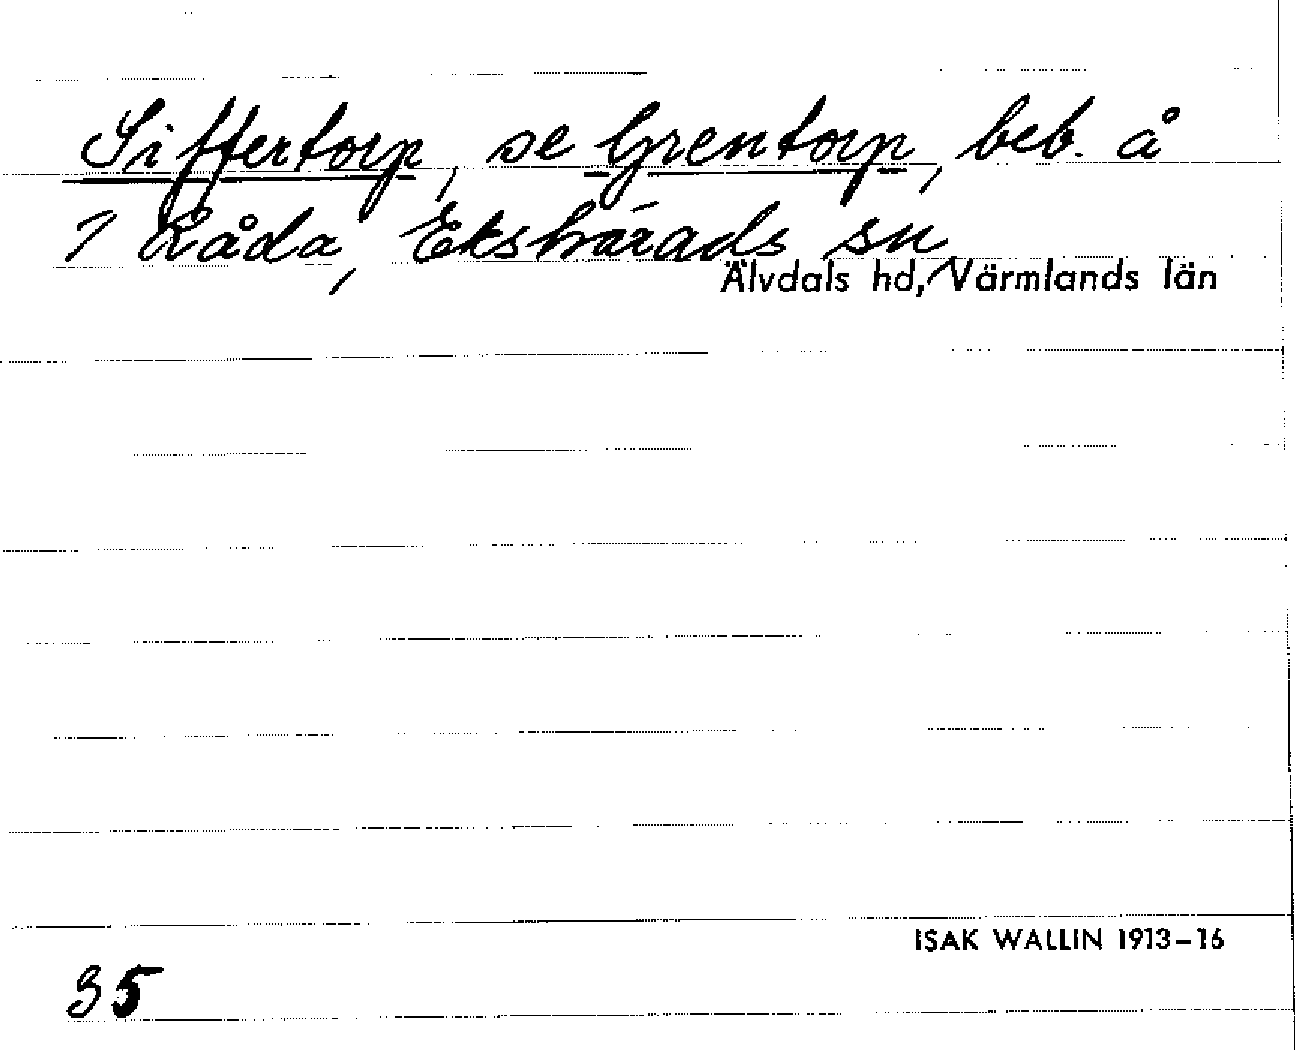 Siffertorp, se Grentorp, beb. å
1 Råda, Ekshärads sn,
Älvdals hd, Värmlands län
ISAK WALLIN 1913-16
35